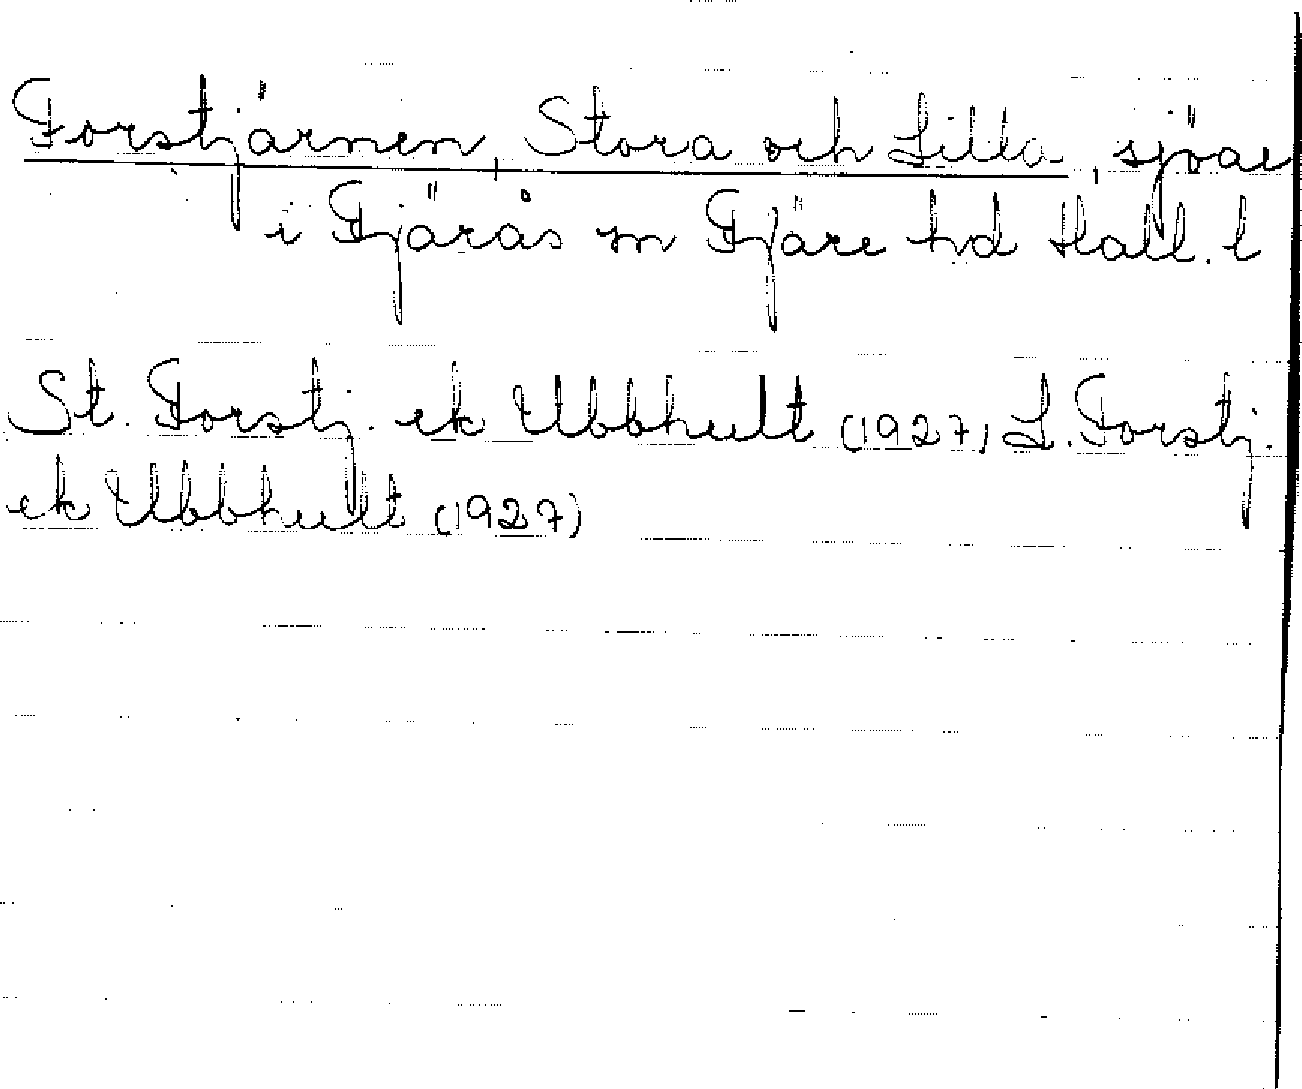 Forstjärnen, Stora och Lilla, sjöar
i Fjärås sn Fjäre hd Hall. l
St. Forstj. ek Ubbhult (1927) L. Forstj.
ek Ubbhult (1927)